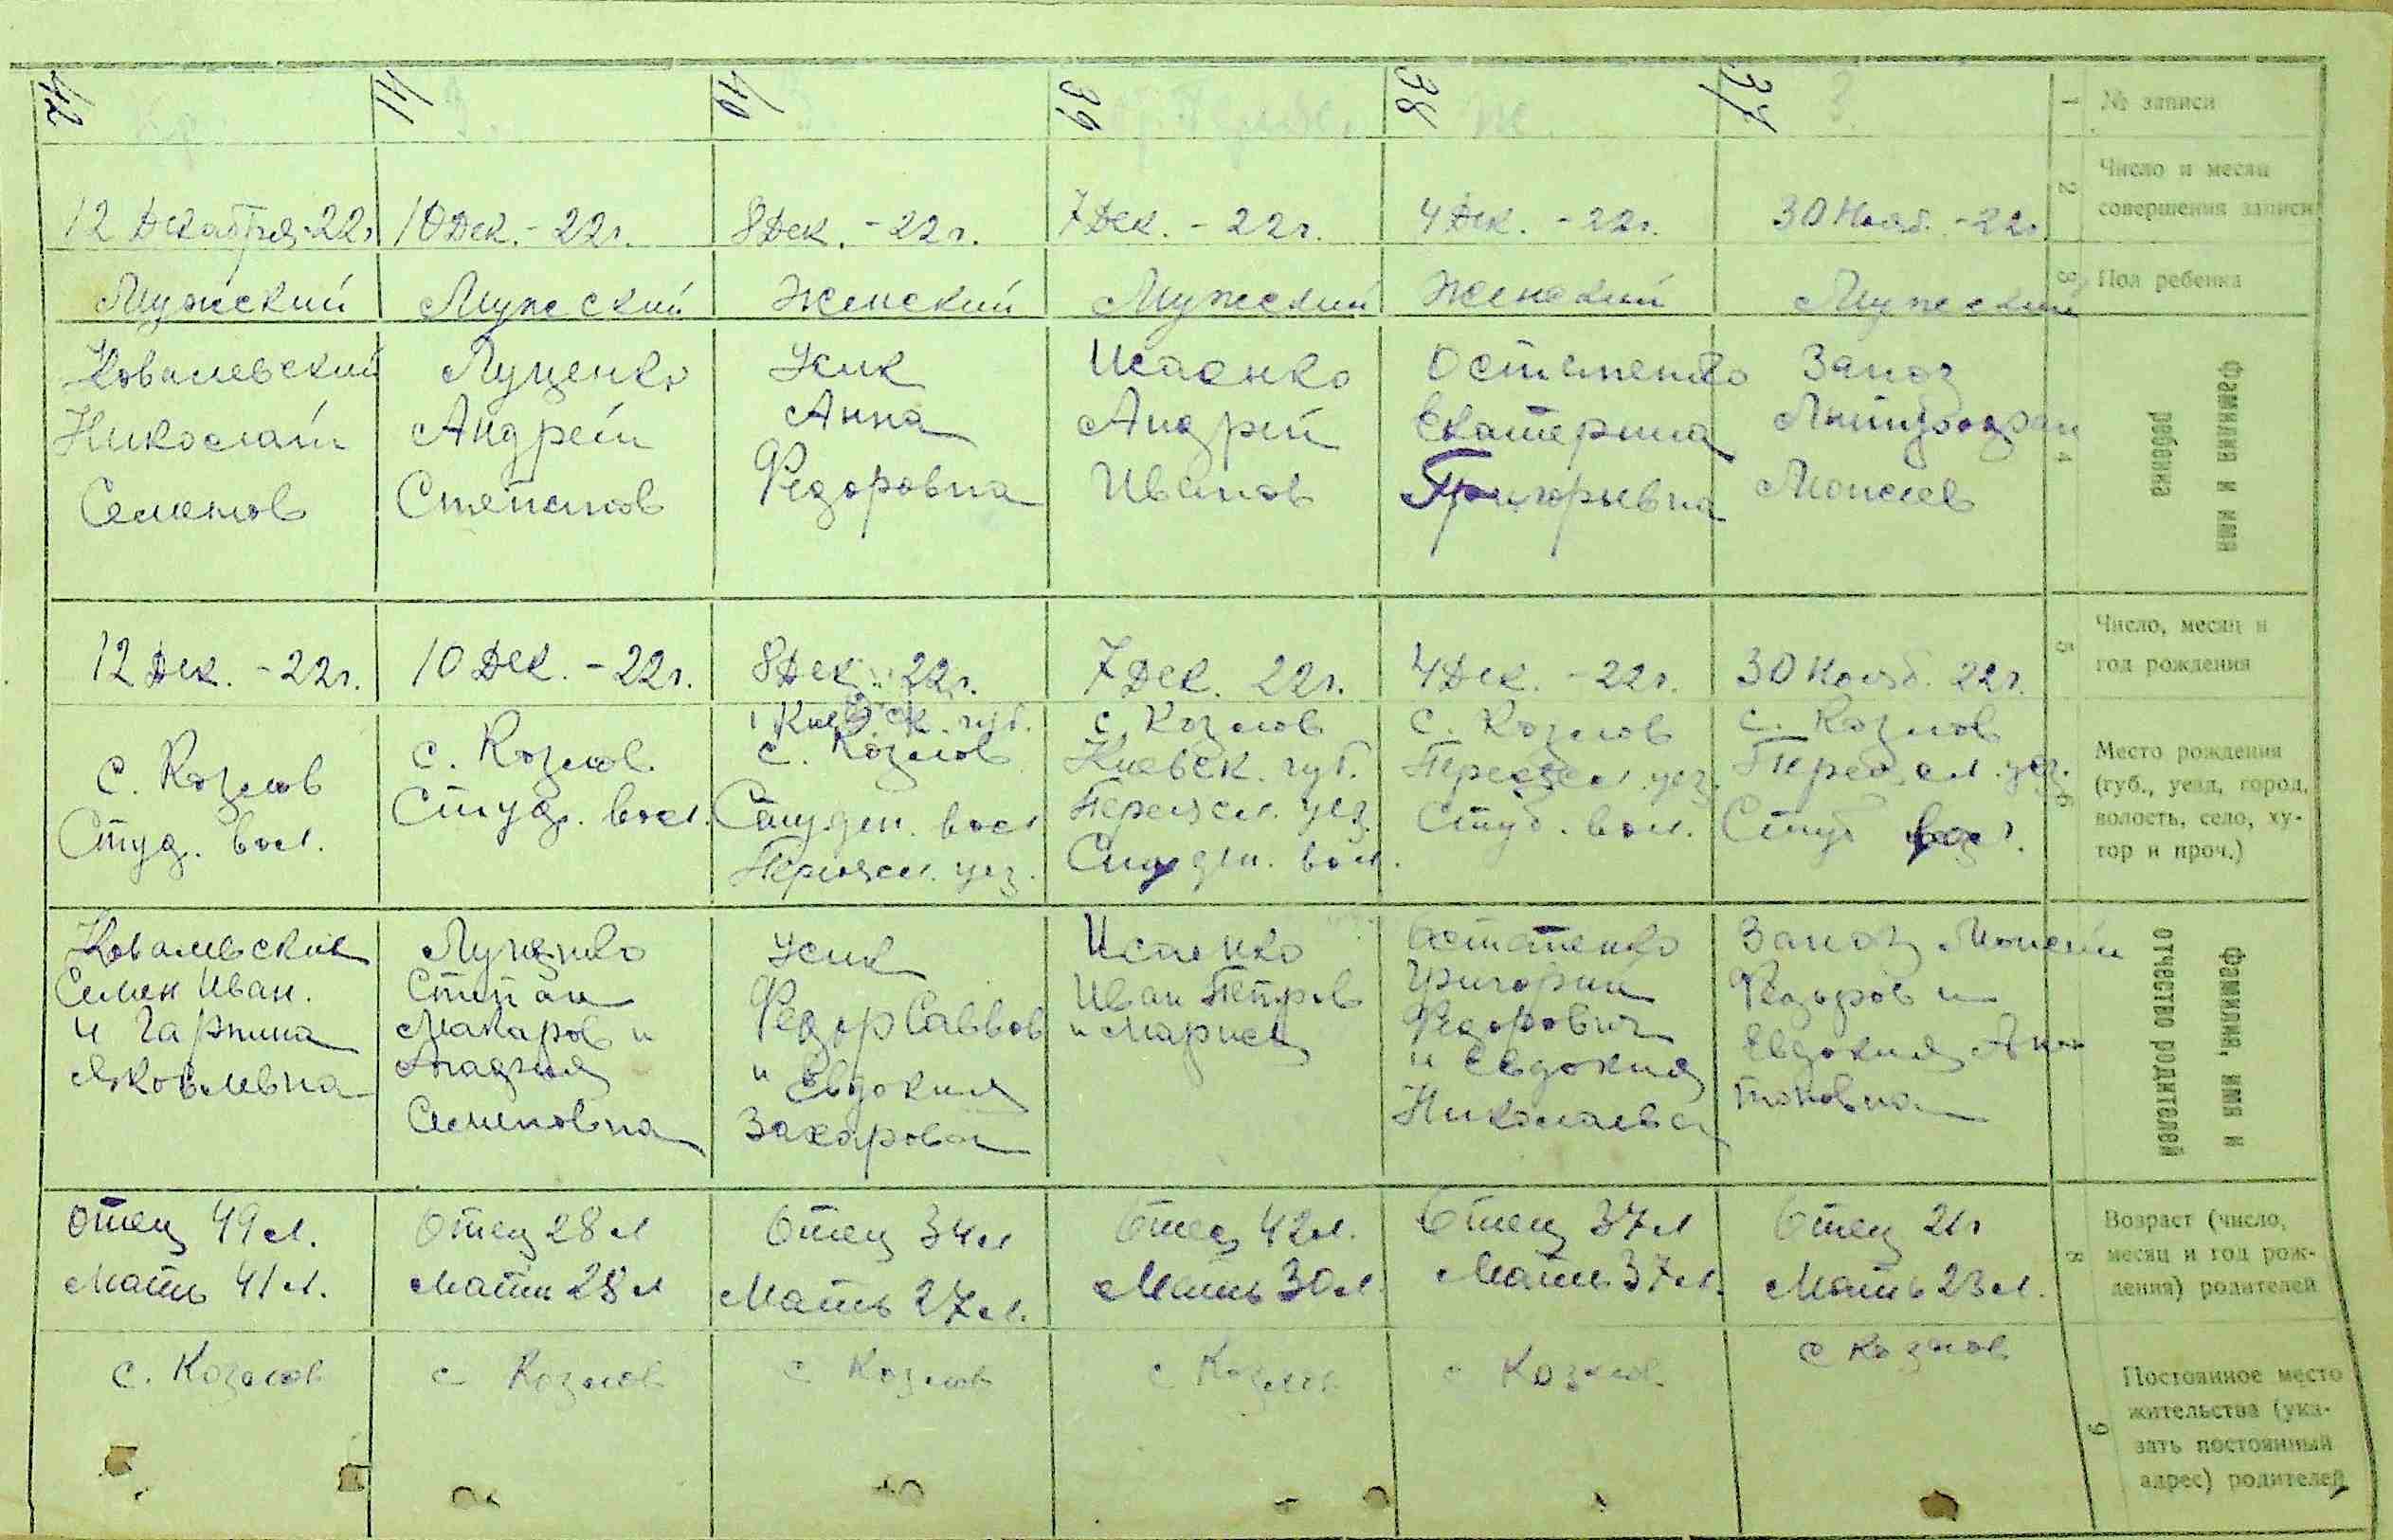 42
41
40
39
38
37
1
№ записи
12 Декабря-22г
10 Дек.-22г.
8 Дек.-22г.
7 Дек.-22г.
4 Дек.-22г.
30 Нояб.-22г
2
Число и месяц
совершения записи
Мужский
Мужский
Женский
Мужский
Женский
Мужский
3
Пол ребенка
Ковалевский
Николай
Семенов
Луценко
Андрей
Степанов
Усик
Анна
Федоровна
Исаенко
Андрей
Иванов
Екатерина
Григорьевна
Моисеев
4
Фамилия и имя
ребенка
12 Дек.-22г.
10 Дек.-22г.
8 Дек. 22г.
7 Дек. 22г.
4 Дек.-22г.
30 Нояб. 22г.
5
Число, месяц и
год рождения
с. Козлов
Студ. вол.
с. Козлов
Студ. вол.
Киевск. губ.
с. Козлов
Студен. вол
Переясл. уез.
с. Козлов
Киевск. губ.
Переясл. уез.
Студен. вол.
с. Козлов
Переясл. уез.
Студ. вол.
с. Козлов
Переясл. уез.
Студ вол.
6
Место рождения
(губ., уезд, город,
волость, село, ху-
тор и проч.)
Ковалевские
Семен Иван.
и
Яковлевна
Луценко
Степан
Макаров и
Семеновна
Усик
Федор Саввов
и Евдокия
Захарова
Исаенко
Иван Петров
и Мария
Григорий
Федорович
и Евдокия
Моисей
Федоров и
Евдокия Ан
тоновна
Фамилия, имя и
отчество родителей
Отец 49 л.
Мать 41 л.
Отец 28 л
Мать 28 л
Отец 34 л
Мать 27 л.
Отец 42 л.
Мать 30 л.
Отец 37 л
Мать 37 л.
Отец 21 г
Мать 23 л.
8
Возраст (число,
месяц и год рож-
дения) родителей
с. Козлов
с Козлов
с Козлов
с Козлов
с Козлов
с Козлов
9
Постоянное место
жительства (ука-
зать постоянный
адрес) родителей